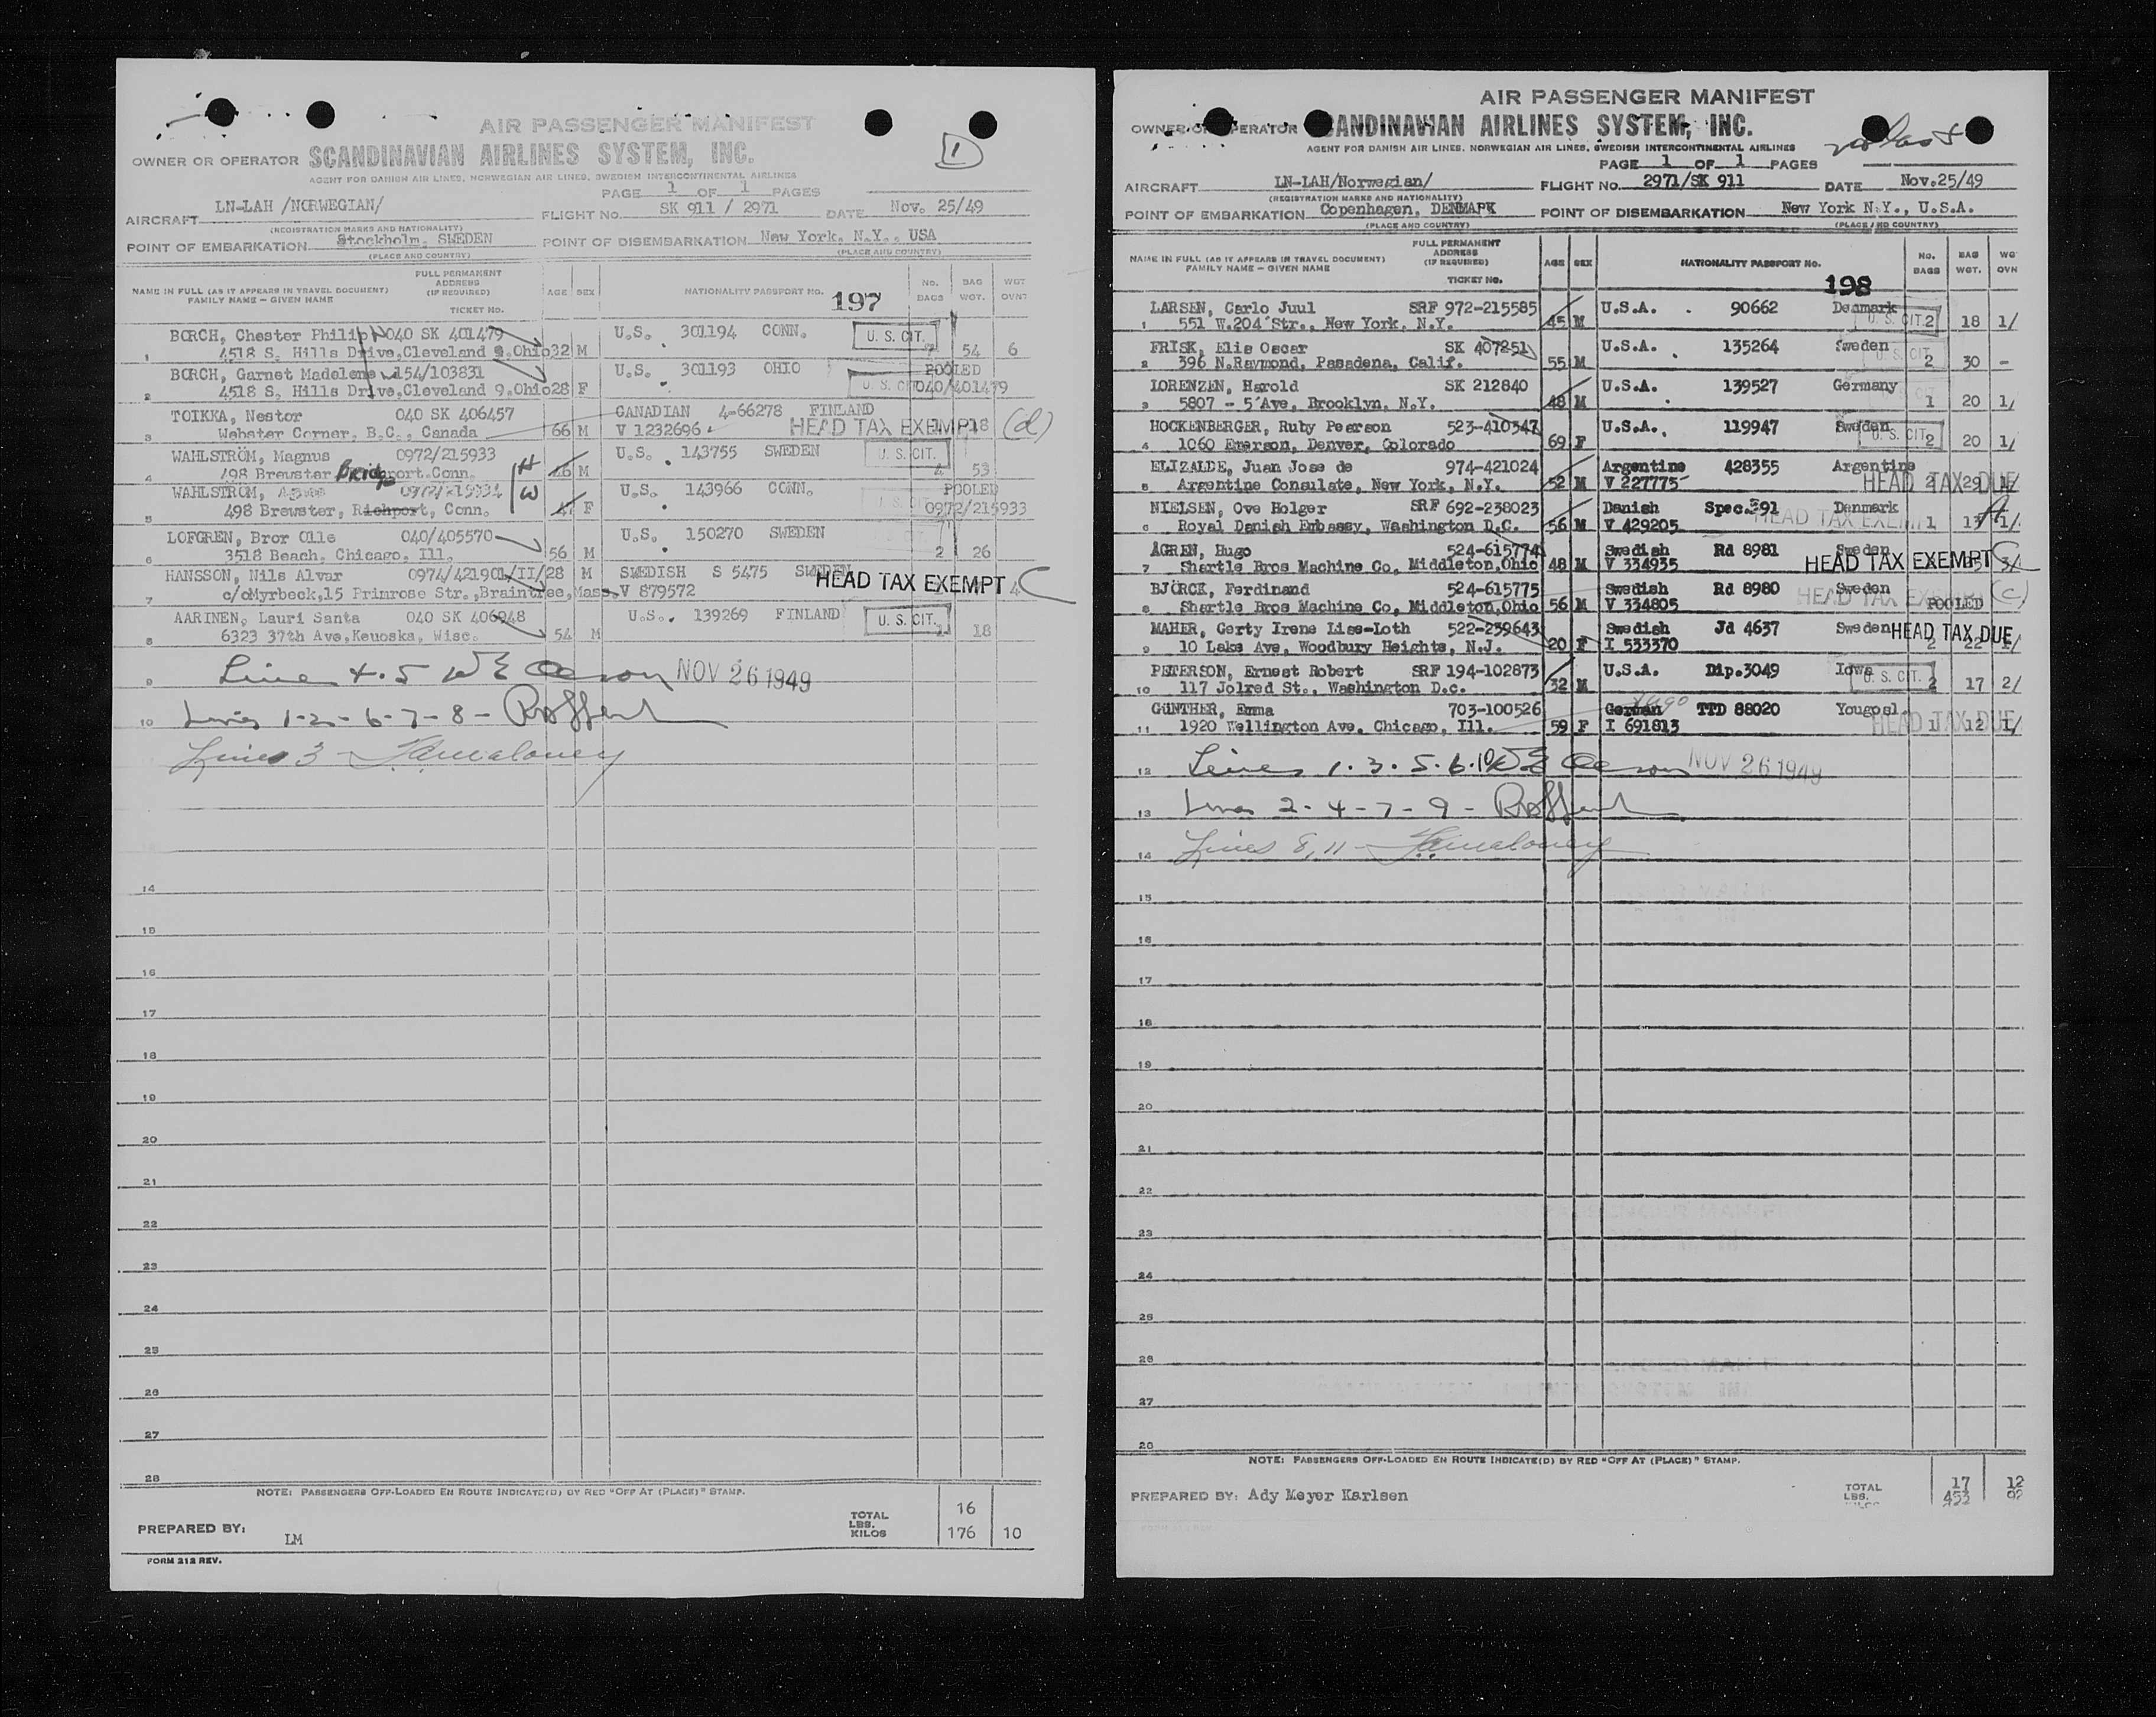 AIR PASSENGER MANIFEST
OWNER OR OPERATOR SCANDINAVIAN AIRLINES SYSTEM, INC.
AGENT FOR DANISH AIR LINES, NORWEGIAN AIR LINES, SWEDISH INTERCONTINENTAL AIRLINES
PAGE 1 OF 1 PAGES
AIRCRAFT LN-LAH /NORWEGIAN/ FLIGHT NO. SK 911 / 2971 DATE Nov. 25/49
(REGISTRATION MARKS AND NATIONALITY)
POINT OF EMBARKATION Stockholm, SWEDEN POINT OF DISEMBARKATION New York, N.Y., USA
(PLACE AND COUNTRY) (PLACE AND COUNTRY)
NAME IN FULL (AS IT APPEARS IN TRAVEL DOCUMENT) FAMILY NAME – GIVEN NAME FULL PERMANENT ADDRESS (IF REQUIRED) TICKET NO. AGE SEX NATIONALITY PASSPORT NO. 197 NO. BAGS BAG WGT. WGT OVWT
BORCH, Chester Philip 040 SK 401479 U.S. 301194 CONN. U. S. CIT.
1 4518 S. Hills Drive,Cleveland 9.Ohio 32 M 7 54 6
BORCH, Garnet Madelene 154/103831 U.S. 301193 OHIO POOLED
2 4518 S. Hills Drive,Cleveland 9.Ohio 28 F U. S. CIT 040/401479
TOIKKA, Nestor 040 SK 406457 CANADIAN 4-66278 FINLAND
3 Webster Corner, B.C., Canada 66 M V 1232696 HEAD TAX EXEMPT 18 (d)
WAHLSTRÖM, Magnus 0972/215933 U.S. 143755 SWEDEN U. S. CIT.
4 498 Brewster Bridgeport.Conn. 46 M 4 53
WAHLSTROM, 0972/215934 H W U.S. 143966 CONN. POOLED
5 498 Brewster, Richport, Conn. F 0972/215933
LOFGREN, Bror Olle 040/405570 U.S. 150270 SWEDEN
6 3518 Beach, Chicago, Ill. 56 M 2 26
HANSSON, Nils Alvar 0974/421901/II/28 M SWEDISH S 5475 SWEDEN HEAD TAX EXEMPT C
7 c/oMyrbeck,15 Primrose Str.,Braintree,Mass. V 879572
AARINEN, Lauri Santa 040 SK 406948 U.S. 139269 FINLAND U. S. CIT.
8 6323 37th Ave,Keuoska, Wisc. 54 M 1 18
9 Lines 4.5 NOV 26 1949
10 Lines 1-2-6-7-8-
Lines 3
14
15
16
17
18
19
20
21
22
23
24
25
26
27
28
NOTE: PASSENGERS OFF-LOADED EN ROUTE INDICATE(D) BY RED "OFF AT (PLACE)" STAMP.
PREPARED BY: LM TOTAL LBS. KILOS 16 176 10
FORM 212 REV.
AIR PASSENGER MANIFEST
OWNER OR OPERATOR SCANDINAVIAN AIRLINES SYSTEM, INC.
AGENT FOR DANISH AIR LINES, NORWEGIAN AIR LINES, SWEDISH INTERCONTINENTAL AIRLINES
PAGE 1 OF 1 PAGES
AIRCRAFT LN-LAH/Norwegian/ FLIGHT NO. 2971/SK 911 DATE Nov.25/49
(REGISTRATION MARKS AND NATIONALITY)
POINT OF EMBARKATION Copenhagen, DENMARK POINT OF DISEMBARKATION New York N.Y., U.S.A.
(PLACE AND COUNTRY) (PLACE AND COUNTRY)
NAME IN FULL (AS IT APPEARS IN TRAVEL DOCUMENT) FAMILY NAME – GIVEN NAME FULL PERMANENT ADDRESS (IF REQUIRED) TICKET NO. AGE SEX NATIONALITY PASSPORT NO. 198 NO. BAGS BAG WGT. WG OVN
LARSEN, Carlo Juul SRF 972-215585 U.S.A. 90662 Denmark
1 551 W.204 Str., New York, N.Y. 45 M U. S. CIT. 2 18 1/
FRISK, Elis Oscar SK 407251 U.S.A. 135264 Sweden
2 396 N.Raymond, Pasadena, Calif. 55 M U. S. CIT 2 30 -
LORENZEN, Harold SK 212840 U.S.A. 139527 Germany
3 5807 - 5'Ave, Brooklyn, N.Y. 48 M 1 20 1/
HOCKENBERGER, Ruby Pearson 523-410347 U.S.A. 119947 Sweden
4 1060 Emerson, Denver, Colorado 69 F U. S. CIT. 2 20 1/
ELIZALDE, Juan Jose de 974-421024 Argentine 428355 Argentine
5 Argentine Consulate, New York, N.Y. 52 M V 227775 HEAD TAX DUE 2 29
NIELSEN, Ove Holger SRF 692-238023 Danish Spec.391 Denmark
6 Royal Danish Embassy, Washington D.C. 56 M V 429205 HEAD TAX EXEMPT 1 13 1/
ÅGREN, Hugo 524-615774 Swedish Rd 8981 Sweden
7 Shartle Bros Machine Co, Middleton,Ohio 48 M V 334935 HEAD TAX EXEMPT C
BJÖRCK, Ferdinand 524-615775 Swedish Rd 8980 Sweden
8 Shartle Bros Machine Co, Middleton,Ohio 56 M V 334805 HEAD TAX EXEMPT POOLED (C)
MAHER, Gerty Irene Lise-Loth 522-239643 Swedish Jd 4637 Sweden HEAD TAX DUE
9 10 Lake Ave, Woodbury Heights, N.J. 20 F I 533370 2 22
PETERSON, Ernest Robert SRF 194-102873 U.S.A. Dip.3049 Iowa
10 117 Jolred St., Washington D.c. 32 M U. S. CIT. 2 17 2/
GÜNTHER, Emma 703-100526 German Yugo TTD 88020 Yougosl.
11 1920 Wellington Ave, Chicago, Ill. 59 F I 691813 HEAD TAX DUE 1 12 1/
12 Lines 1.3.5.6.10 NOV 26 1949
13 Lines 2-4-7-9-
14 Lines 8,11
15
16
17
18
19
20
21
22
23
24
25
26
27
28
NOTE: PASSENGERS OFF-LOADED EN ROUTE INDICATE(D) BY RED "OFF AT (PLACE)" STAMP.
PREPARED BY: Ady Meyer Karlsen TOTAL LBS. 17 453 12 92